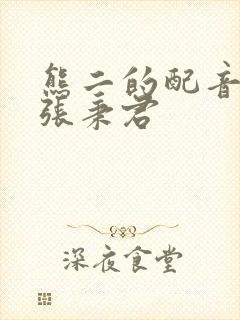 熊二的配音
张秉君
深夜食堂